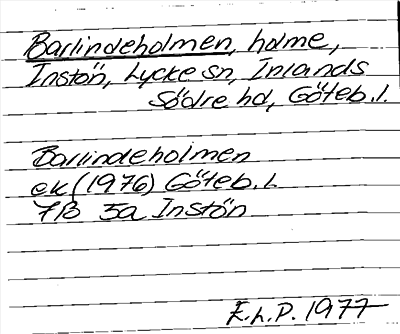 Barlindeholmen, holme,
Instön, Lycke sn, Inlands
Södre hd, Göteb.l.
Barlindeholmen
ek (1976) Göteb.l.
7B 5a Instön
K.L.P. 1977